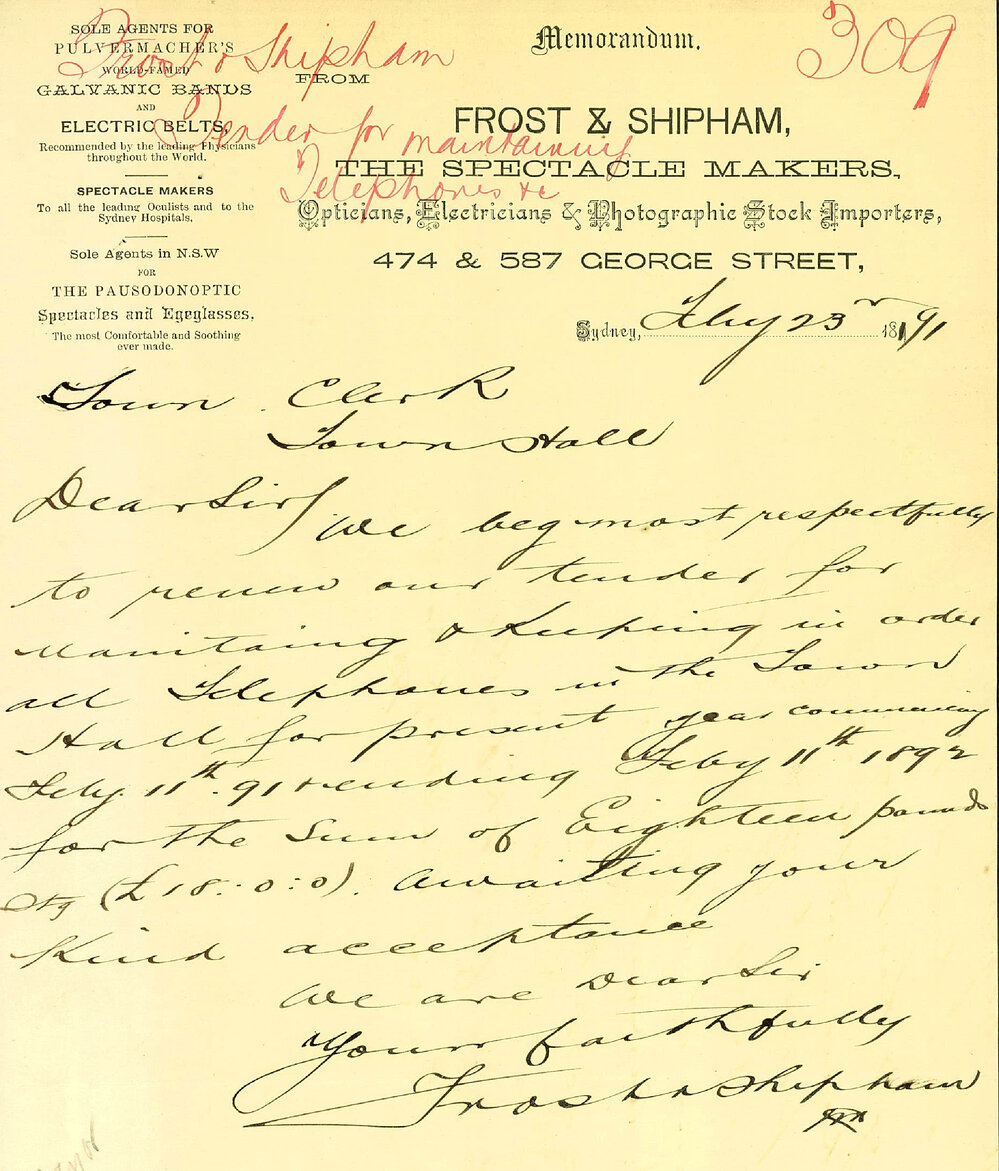 SOLE AGENTS FOR
PULVERMACHER'S
WORLD-FAMED
GALVANIC BANDS
AND
ELECTRIC BELTS,
Recommended by the leading Physicians
throughout the World.
SPECTACLE MAKERS
To all the leading Oculists and to the
Sydney Hospitals.
Sole Agents in N.S.W
FOR
THE PAUSODONOPTIC
Spectacles and Eyeglasses,
The most Comfortable and Soothing
ever made.
Frost & Shipham
Tender for maintaining
Telephones &c
309
Memorandum.
FROM
FROST & SHIPHAM,
THE SPECTACLE MAKERS,
Opticians, Electricians & Photographic Stock Importers,
474 & 587 GEORGE STREET,
Sydney, Feby 23r 1891
Town Clerk
Town Hall
Dear Sir/
We beg most respectfully
to renew our tender for
Maintaing & Keeping in order
all Telephones in the Town
Hall for present year commencing
Feby. 11th. 91 & ending Feby 11th 1892
for the Sum of Eighteen pounds
Stg (£18:0:0). Awaiting your
Kind acceptance
We are Dear Sir
Yours faithfully
Frost & Shipham